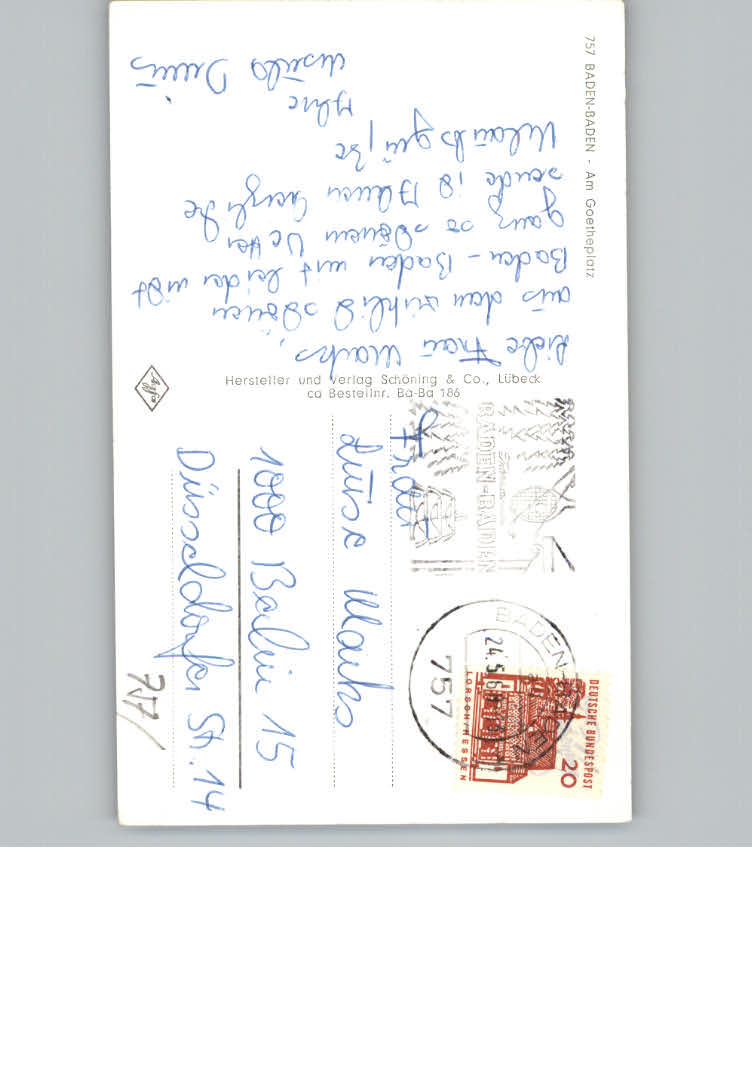 757 BADEN-BADEN - Am Goetheplatz
Liebe Frau Marks,
aus dem wirklich schönen
Baden-Baden mit leider nicht
ganz so schönem Wetter
sende ich Ihnen herzliche
Urlaubsgrüße
Ihre
Ursula
Hersteller und Verlag Schöning & Co., Lübeck
ca Bestellnr. Ba-Ba 186
BADEN-BADEN
BADEN-BADEN
24.5.6
757
DEUTSCHE BUNDESPOST
20
LORSCH/HESSEN
Frau
Luise Marks
1000 Berlin 15
Düsseldorfer St. 14
757/